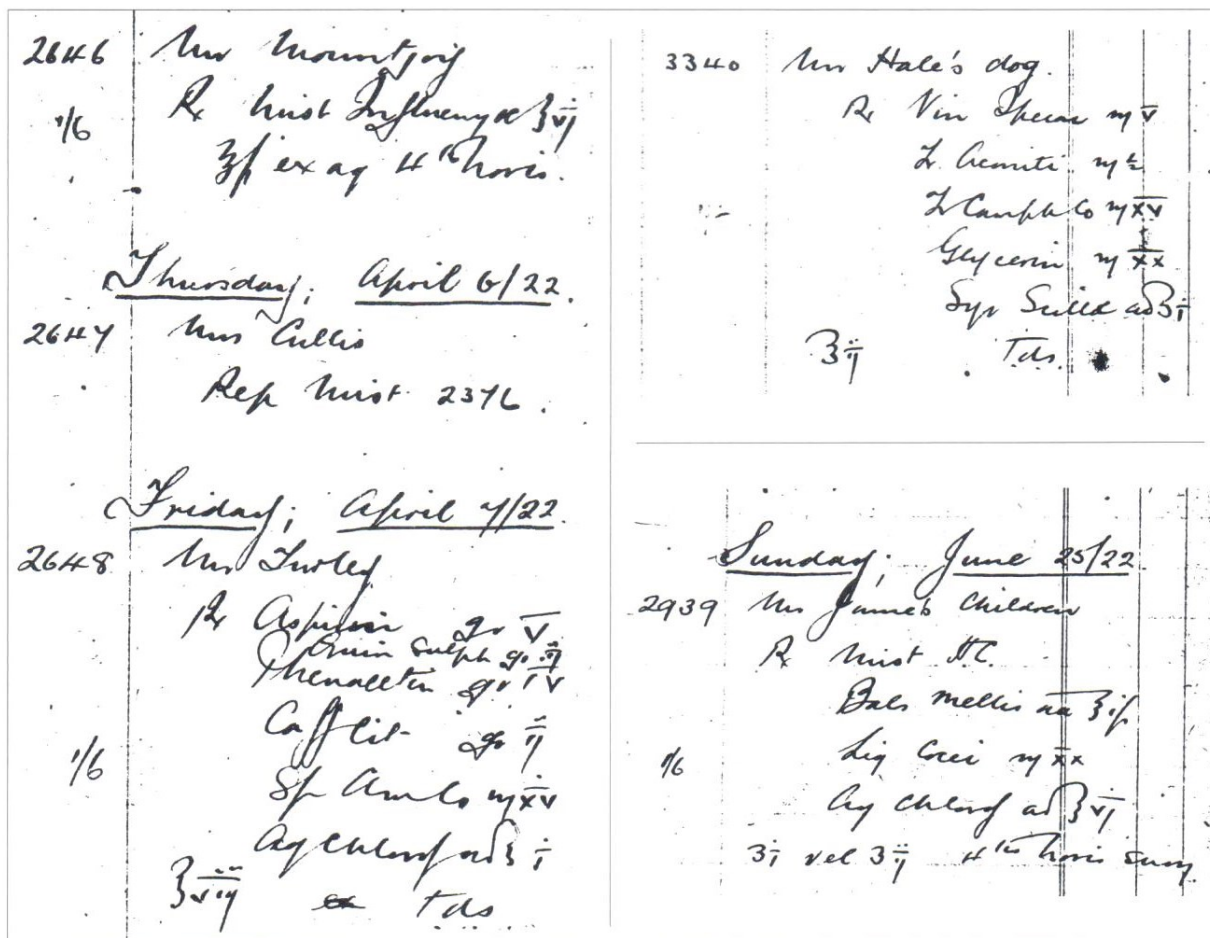 2646 Mr Mountjoy
1/6 Rx Mist Influenzae ℥vj
℥ß ex aq 4tis horis.
Thursday; April 6/22.
2647 Mrs Cullis
Rep Mist 2376.
Friday; April 7/22.
2648 Mr Turley
Rx Aspirin gr v
Quin Sulph gr iij
Phenacetin gr iv
Caff Cit gr ij
1/6 Sp Am Co ♏ xv
Aq Chlorof ad ℥ i
℥viij Tds
3340 Mr Hale's dog.
Rx Vin Ipecac ♏ v
Tr. Aconiti ♏ ½
Tr Camph Co ♏ xv
Glycerin ♏ xx
Syr Scillae ad ʒi
℥ij Tds.
Sunday; June 25/22
2939 Mr James Children
Rx Mist
Bals Mellis aa ℥iß
1/6 Liq Cocci ♏ xx
Aq Chlorof ad ℥vj
ʒi vel ʒij 4tis horis